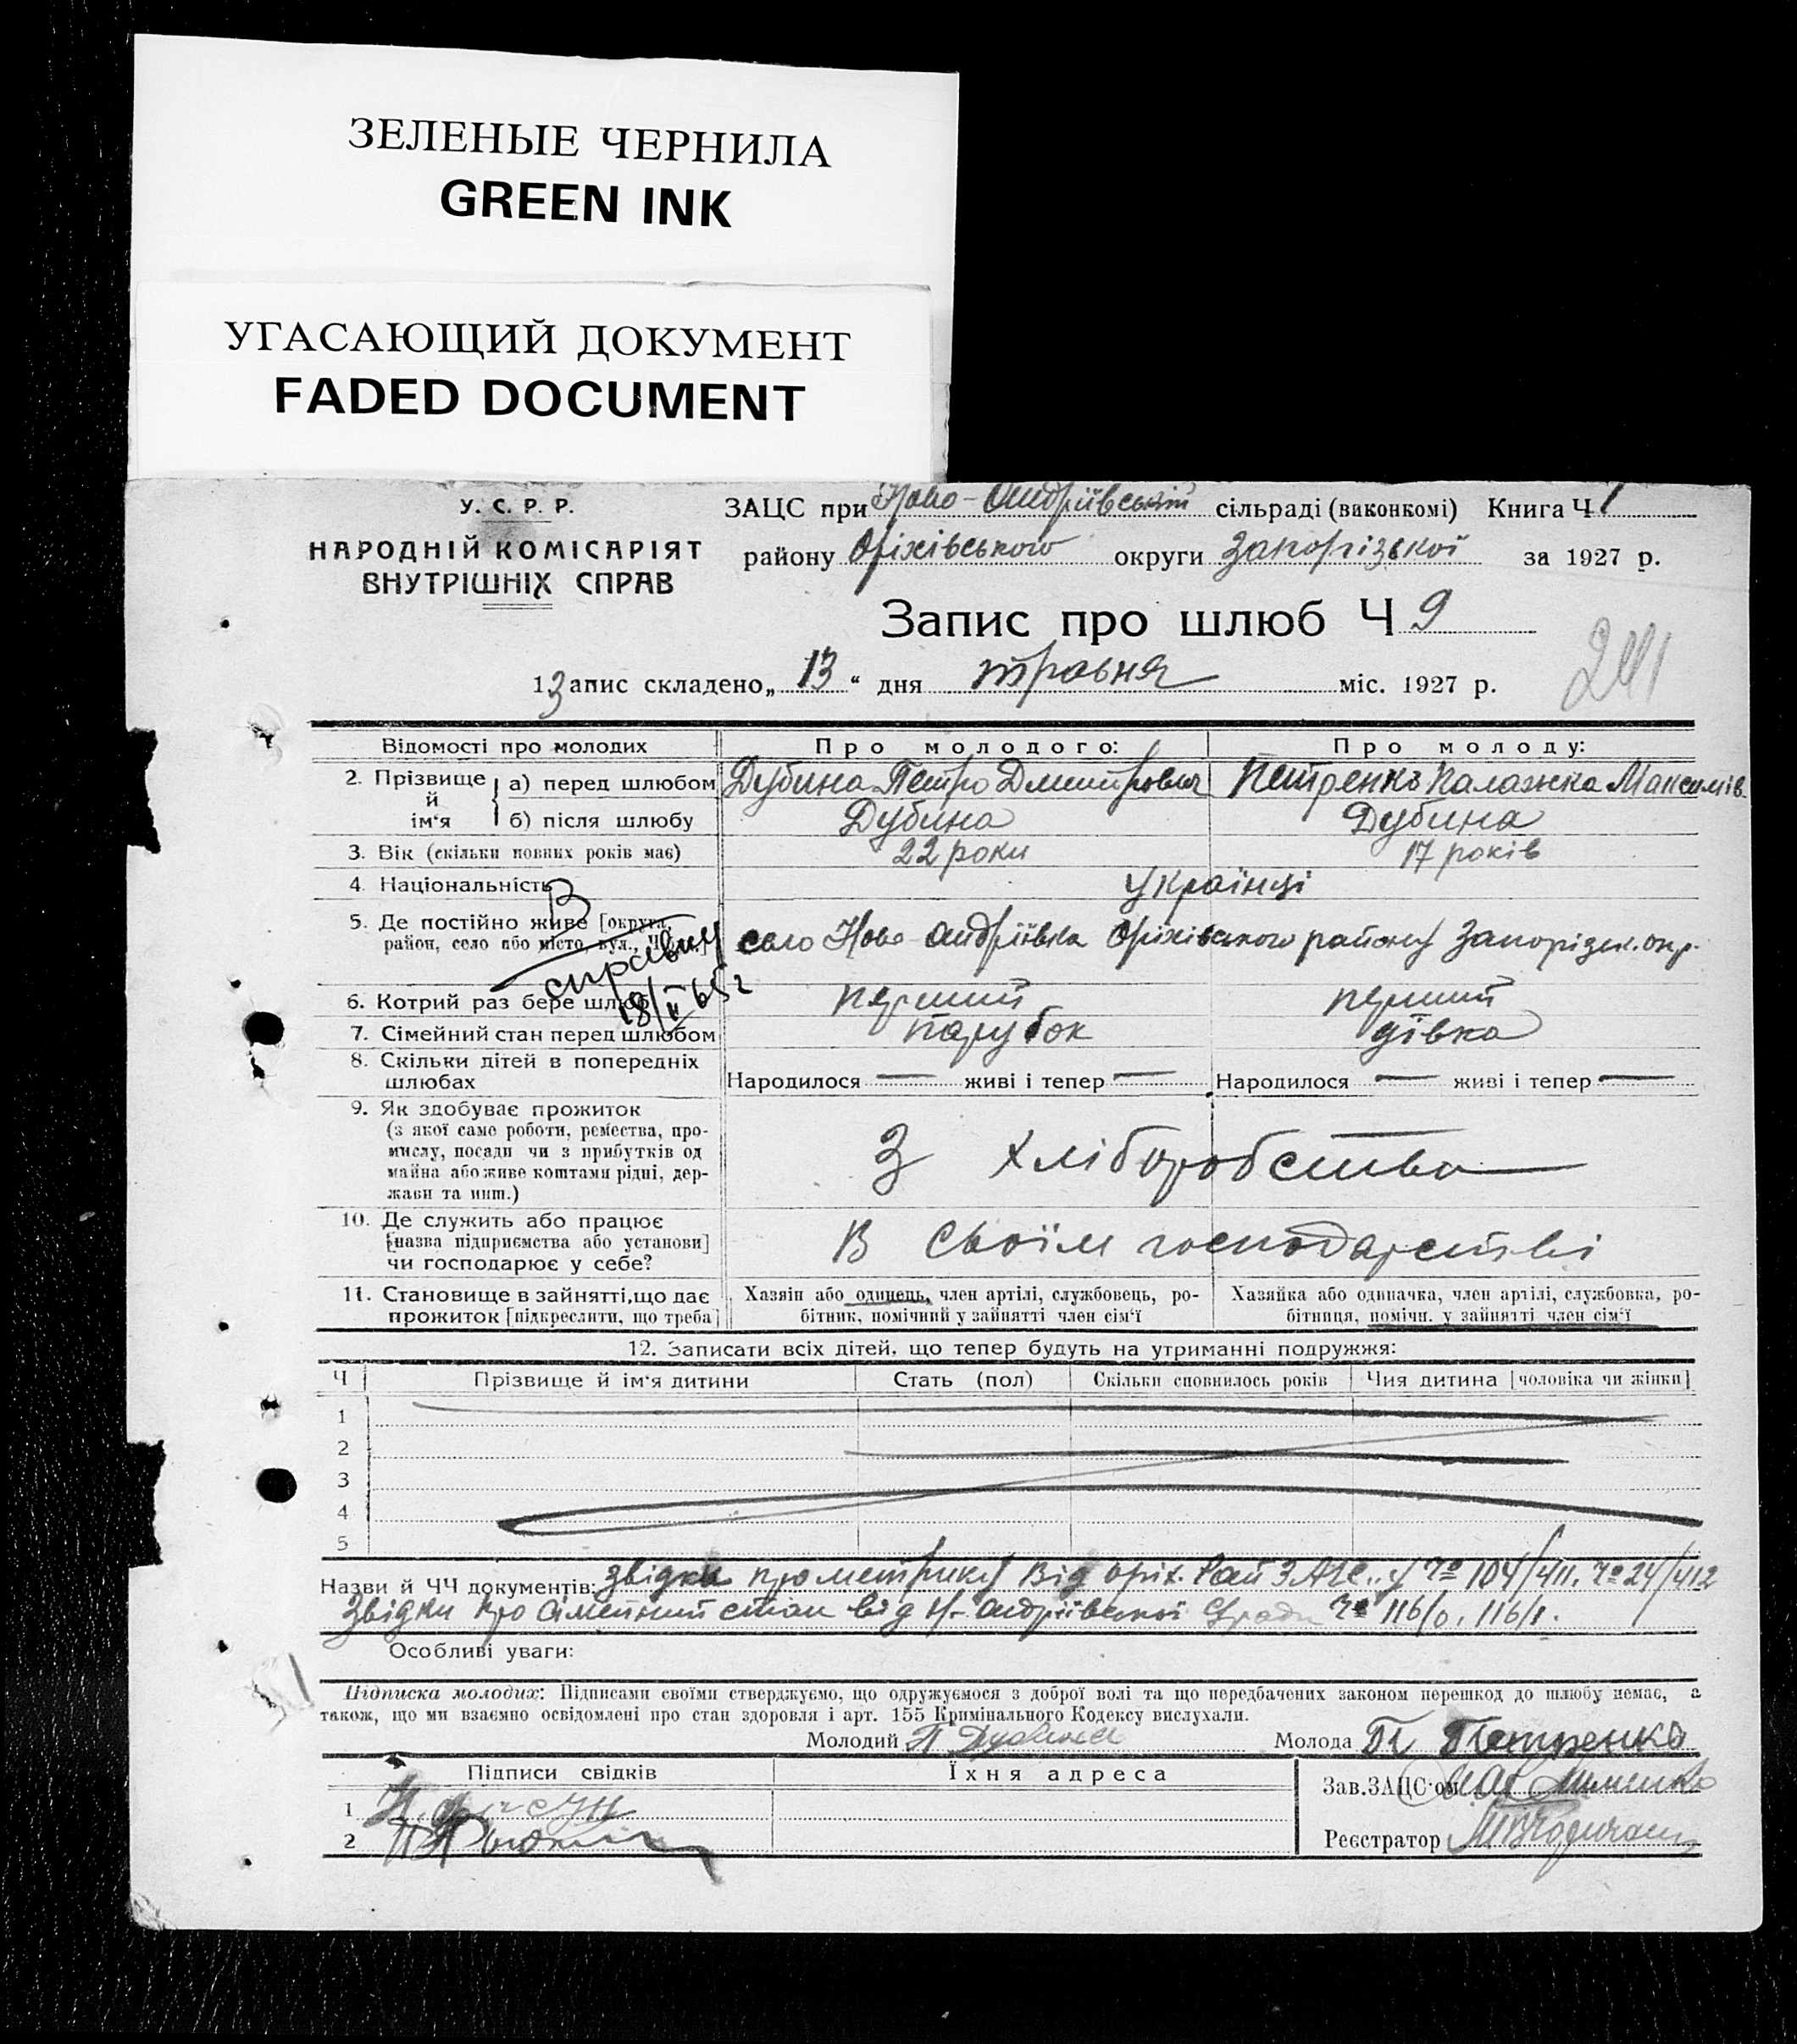 ЗЕЛЕНЫЕ ЧЕРНИЛА
GREEN INK
УГАСАЮЩИЙ ДОКУМЕНТ
FADED DOCUMENT
У. С. Р. Р.
НАРОДНІЙ КОМІСАРІЯТ
ВНУТРІШНІХ СПРАВ
ЗАЦС при Ново-Андріівській сільраді (виконкомі) Книга Ч 1
району Оріхівського округи Запорізької за 1927 р.
Запис про шлюб Ч 9
241
1 Запис складено „ 13 “ дня травня міс. 1927 р.
Відомості про молодих Про молодого: Про молоду:
2. Прізвище й ім‘я а) перед шлюбом Дубина Петро Дмитрович Петренко Палажка Максимів.
б) після шлюбу Дубина Дубина
3. Вік (скільки повних років має) 22 роки 17 років
4. Національність Українці
5. Де постійно живе [округа,
район, село або місто, вул., Ч] село Ново-Андріівка Оріхівського району Запорізьк. окр.
В
справки
18/II 65 г
6. Котрий раз бере шлюб перший перший
7. Сімейний стан перед шлюбом парубок дівка
8. Скільки дітей в попередніх
шлюбах Народилося — живі і тепер — Народилося — живі і тепер —
9. Як здобуває прожиток
(з якої саме роботи, ремества, про-
мислу, посади чи з прибутків од
майна або живе коштами рідні, дер-
жави та инш.) З хліборобства
10. Де служить або працює
[назва підприємства або установи]
чи господарює у себе? В своїм господарстві
11. Становище в зайнятті, що дає
прожиток [підкреслити, що треба]
Хазяїн або одинець, член артілі, службовець, ро-
бітник, помічний у зайнятті член сім‘ї
Хазяйка або одиначка, член артілі, службовка, ро-
бітниця, помічн. у зайнятті член сім‘ї
12. Записати всіх дітей, що тепер будуть на утриманні подружжя:
Ч Прізвище й ім‘я дитини Стать (пол) Скільки сповнилось років Чия дитина [чоловіка чи жінки]
1
2
3
4
5
Назви й ЧЧ документів: Звідки про метрику від Оріх. Рай ЗАГС. 104/411. 24/412
Звідки про сімейний стан від Н-Андріівської С/ради 116/0. 116/1.
Особливі уваги:
Підписка молодих: Підписами своїми стверджуємо, що одружуємося з доброї волі та що передбачених законом перешкод до шлюбу немає, а
також, що ми взаємно освідомлені про стан здоровля і арт. 155 Кримінального Кодексу вислухали.
Молодий П Дубина Молода П Петренко
Підписи свідків Їхня адреса
Зав. ЗАЦС‘ом
1
2
Реєстратор